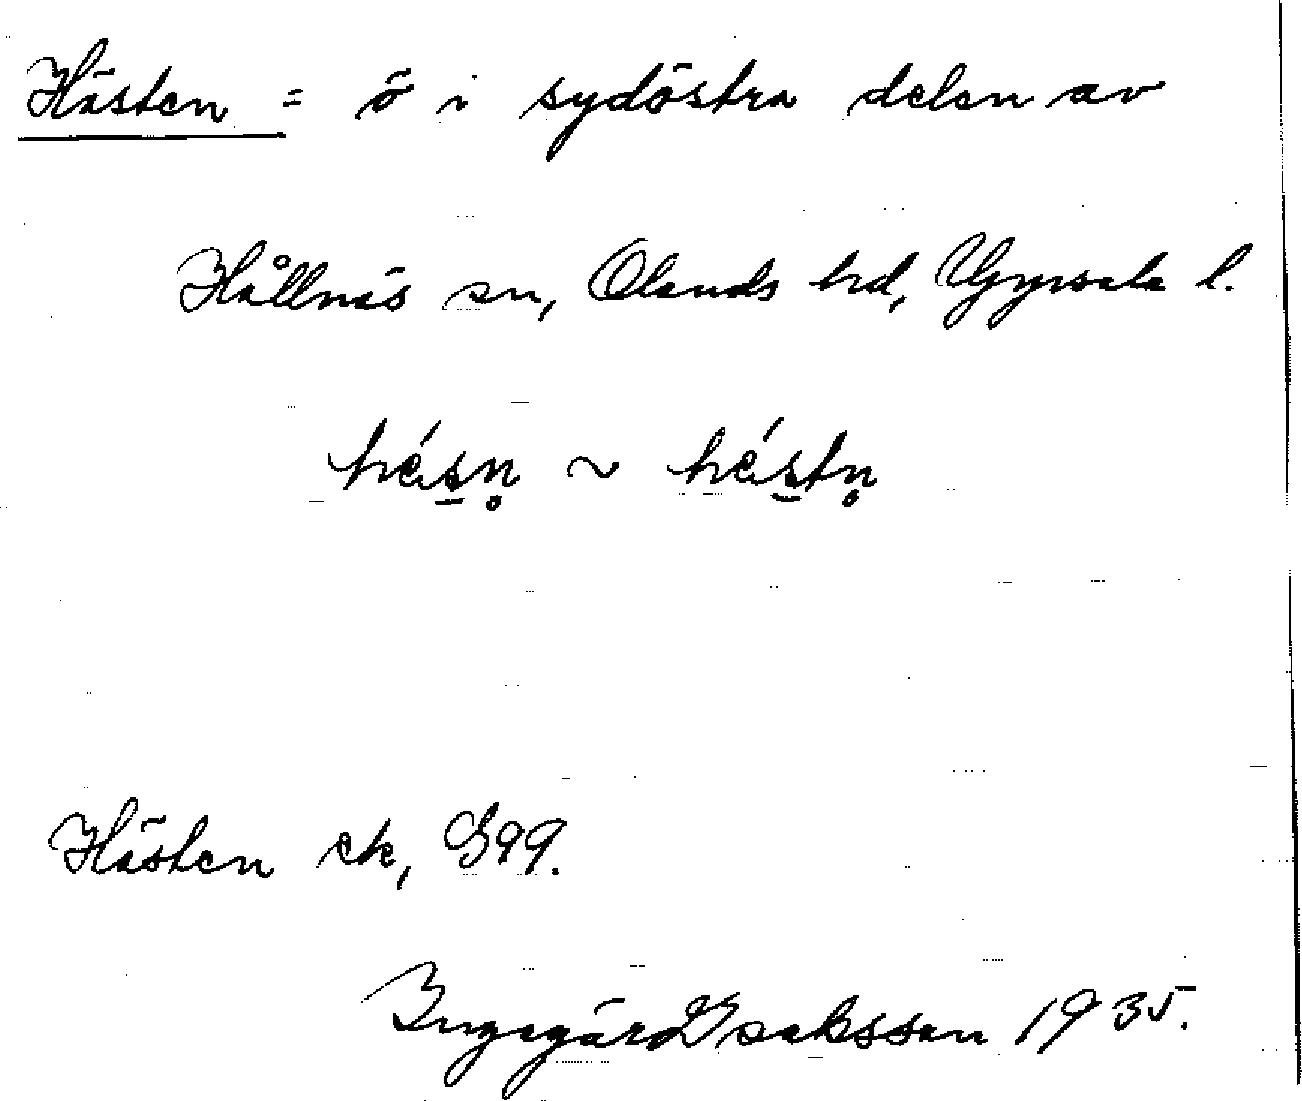 Hästen = ö i sydöstra delen av
Hållnäs sn, Olands hd, Uppsala l.
hés̠n̥ ~ hés̠tn̥
Hästen ek, G99.
Ingegärd Isaksson 1935.